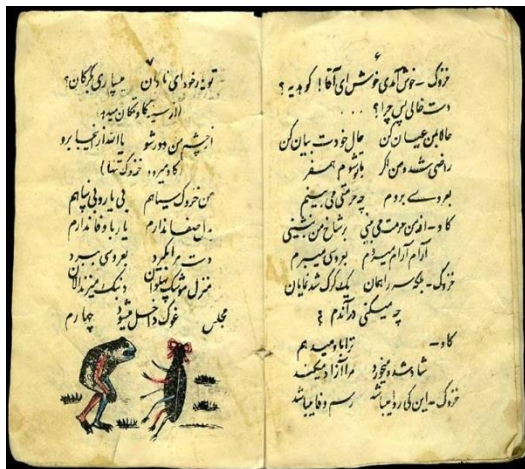 ۶
خزوک - خوش آمدی خوش ای آقا! کو هدیه؟
دست خالی پس چرا؟ . . .
حالا بمن عیان کن حال خودت بیان کن
راضی شده من اگر یارشوم همسفر
بعروسی بروم چه حرمتی می بینم
گاو - از من حرمت می بینی بر شاخ من نشینی
آرام آرام میبرم بعروسی میبرم
خزوک - یکگر همان یک گرگ شد نمایان
چه میکنی در آندم ؟
گاو - ترا باو میدهم
شاد شده میخورد مرا آزاد میکند
خزوک - این کی روا میباشد رسم وفا میباشد
۷
تو یار خود ای نادان میسپاری گرگان؟
از چشم من دور شو یاالله از اینجا برو
(گاو میرود خزوک تنها)
من خزوک سیاهم بی یار و بی پناهم
من صفا ندارم یار با وفا ندارم
دست مرا بگیرد بعروسی ببرد
منزل موشک پهلوان دنبک میزند الان
مجلس غوک داخل میشود چهارم